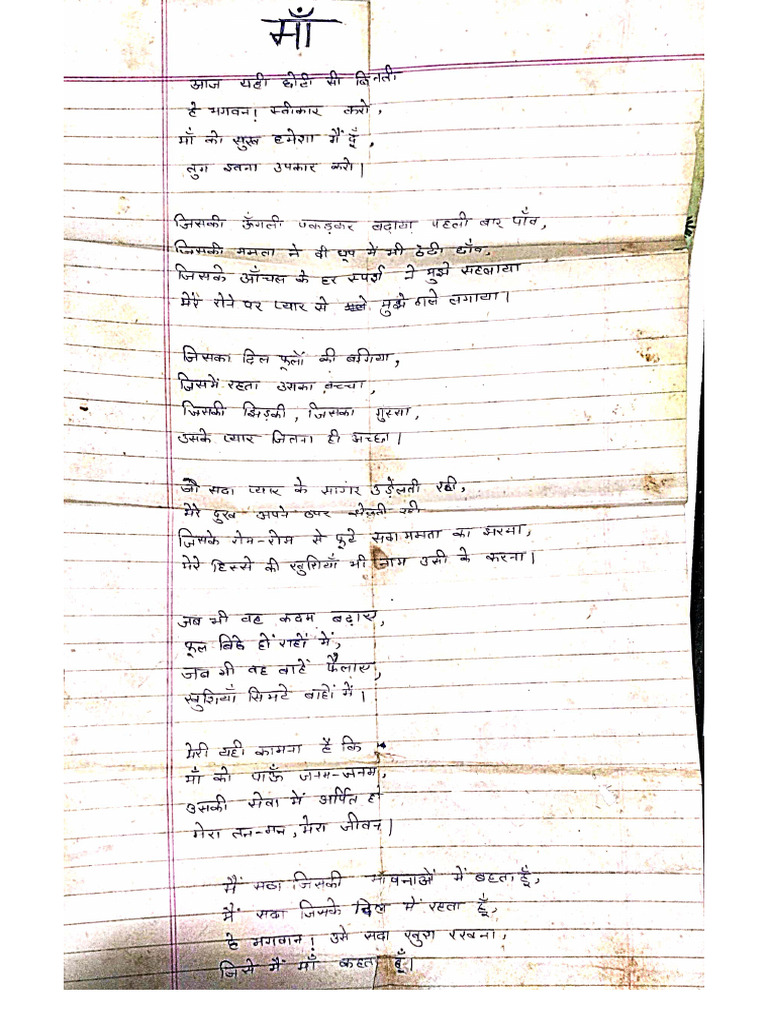 माँ
आज यही छोटी सी बिनती
हे भगवन! स्वीकार करो,
माँ को सुख हमेशा मैं दूँ,
तुम इतना उपकार करो।
जिसकी ऊँगली पकड़कर बढ़ाया पहली बार पाँव,
जिसकी ममता ने दी धूप में भी ठंडी छाँव,
जिसके आँचल के हर स्पर्श ने मुझे सहलाया
मेरे रोने पर प्यार से मुझे गले लगाया।
जिसका दिल फूलों की बगिया,
जिसमें रहता उसका बच्चा,
जिसकी झिड़की, जिसका गुस्सा,
उसके प्यार जितना ही अच्छा।
जो सदा प्यार के सागर उड़ेलती रही,
मेरे दुख अपने ऊपर झेलती रही
जिसके रोम-रोम से फूटे सदा ममता का झरना,
मेरे हिस्से की खुशियाँ भी नाम उसी के करना।
जब भी वह कदम बढ़ाए,
फूल बिछे हों राहों में,
जब भी वह बाहें फैलाए,
खुशियाँ सिमटे बाहों में।
मेरी यही कामना है कि
माँ को पाऊँ जनम-जनम,
उसकी सेवा में अर्पित हो
मेरा तन-मन, मेरा जीवन।
मैं सदा जिसकी भावनाओं में बहता हूँ,
मैं सदा जिसके दिल में रहता हूँ,
हे भगवान! उसे सदा खुश रखना,
जिसे मैं माँ कहता हूँ।